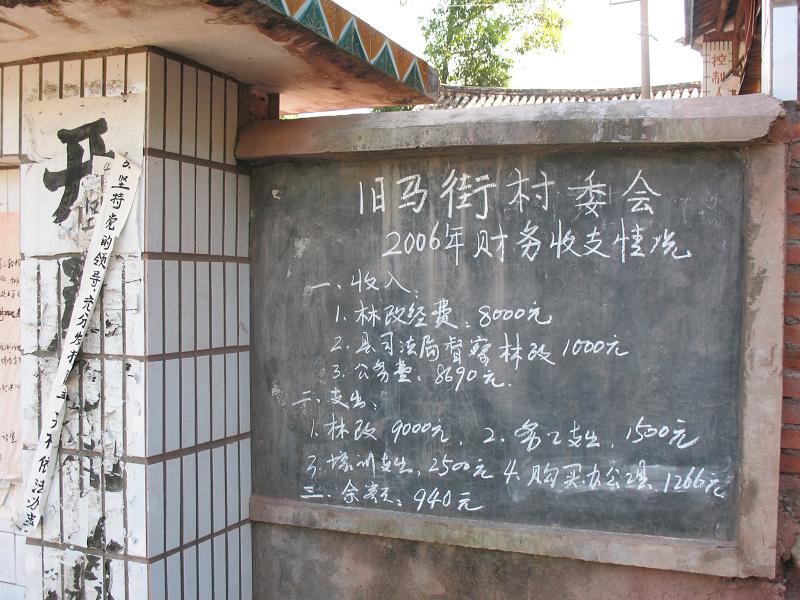 旧马街村委会
2006年财务收支情况
一、收入
1. 林改经费：8000元
2. 县司法局督察林改1000元
3. 公务费：8690元.
二、支出：
1. 林改 9000元. 2. 务工支出，1500元
3. 培训支出，2500元 4. 购买办公工具1266元
三、余额：940元
开
6. 坚持党的领导，充分发
依法办
控制人